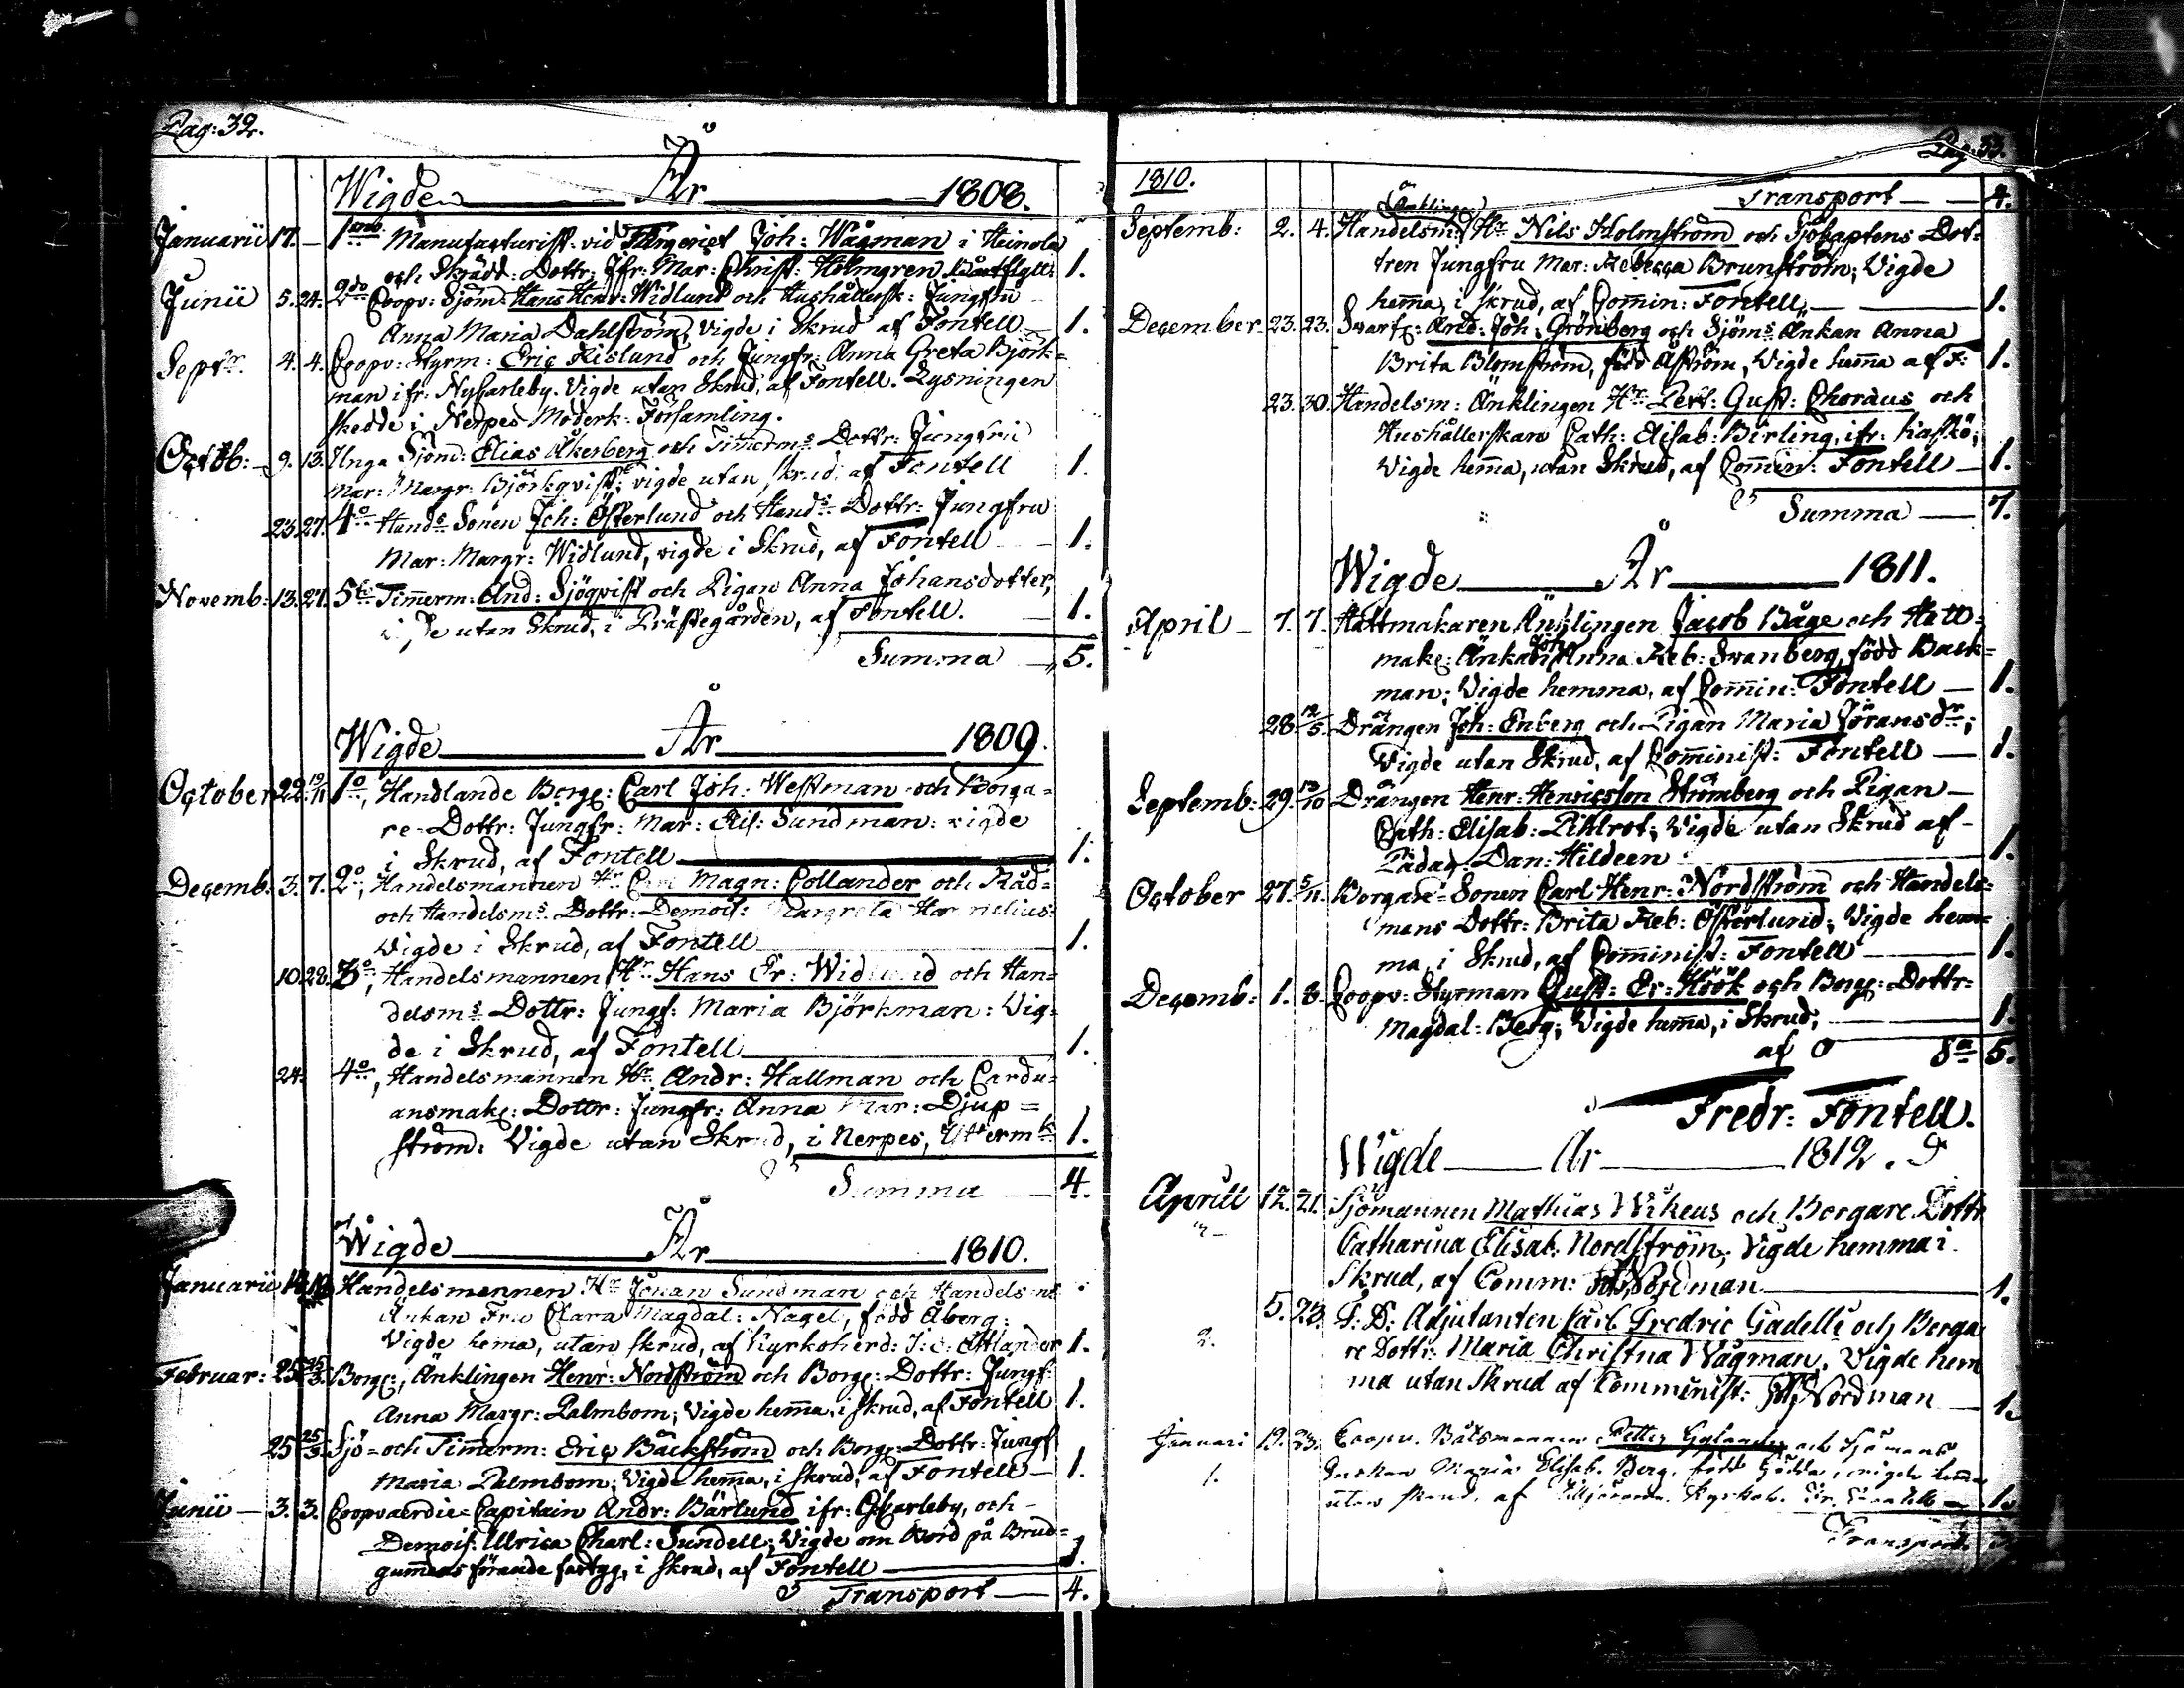 Pag: 32.
Wigde År 1808.
Januarii 17. 1mo Manufacturist. vid Färgeriet Joh: Wågman i Heinola
och Skrädd: Dottr: Jfr: Mar: Christ: Holmgren 1.
Junii 5. 24. 2do Coopv: Sjöm: Hans Henr: Widlund och Hushållersk: Jungfru
Anna Maria Dahlström, vigde i Skrud af Fontell 1.
Septr. 4. 4. Coopv: Styrm: Eric Kislund och Jungfr: Anna Greta Björk=
man ifr: NyCarleby. Vigde utan Skrud, af Fontell. Lysningen
skedde i Nerpes Moderk: Församling.
Octob: 9. 13. Unga Sjöm: Elias Åkerberg och Timerms Dottr: Jungfru
Mar: Margr: Björkqvist; vigde utan skrud: af Fontell 1.
23. 27. 4o Hands Sonen Joh: Österlund och Hands Dottr: Jungfru
Mar: Margr: Widlund, vigde i Skrud, af Fontell 1.
Novemb: 13. 27. 5o Timmerm: And: Sjöqvist och Pigan Anna Johansdotter,
utan Skrud, i Prästegården, af Fontell. 1.
Summa 5.
Wigde År 1809.
October 22. 19/11 1o, Handlande Borg: Carl Joh: Westman och Borga=
re Dottr: Jungfr: Mar: Elis: Sundman: vigde
i Skrud, af Fontell 1.
Decemb: 3. 7. 2o, Handelsmannen Hr Carl Magn: Collander och Råd=
och Handelsms Dottr: Demois: Margreta
Vigde i Skrud, af Fontell 1.
10. 28. 3o, Handelsmannen Hr Hans Er: Widlund och Han=
delsms Dottr: Jungf: Maria Björkman: Vig=
de i Skrud, af Fontell 1.
24. 4o, Handelsmannen Hr Andr: Hallman och Cardu=
ansmak: Dottr: Jungfr: Anna Mar: Djup=
ström: Vigde utan Skrud, i Nerpes, 1.
Summa 4.
Wigde År 1810.
Januarii Handelsmannen Hr Johan Sundman och Handelsms
Änkan Fru Clara Magdal: Nagel, född Åberg;
Vigde hema, utan skrud, af Kyrkoherd: 1.
Februar: 25. Borg:, Änklingen Henr: Nordström och Borg: Dottr: Jungf:
Anna Margr: Palmbom; Vigde hema, i skrud, af Fontell 1.
25 25/3 Sjö= och Timerm: Eric Bäckström och Borg: Dottr: Jungf
Maria Palmbom; Vigde hema, i skrud, af Fontell 1.
Junii 3. 3. Coopvaerdie Capitain Andr: Bärlund ifr: GCarleby, och
Demois: Ulrica Charl: Sundell; Vigde om Bord på Brud=
gumens förande fartyg, i skrud, af Fontell 1.
Transport 4.
Pag: 33.
1810.
Transport 4.
Änklingen
Septemb: 2. 4. Handelsm: Hr Nils Holmström och Sjökaptens Dot=
tren Jungfru Mar: Rebecca Brunström; Vigde
hema, i skrud, af Comin: Fontell 1.
December 23. 23. Svarf: And: Joh: Grönberg och Sjöms Änkan Anna
Brita Blomström, född Åström, Vigde hema af F: 1.
23. 30. Handelsm: Änklingen Hr Petr: Gust: Choræus och
Hushållerskan Cath: Elisab: Birling, ifr: Kaskö;
Vigde hema, utan Skrud, af Comin: Fontell 1.
Summa 7.
Wigde År 1811.
April 7. 7. Hattmakaren Änklingen Jacob Båge och Hatt=
mak: Änkan Anna Reb: Svanberg, född Back=
man; Vigde hemma, af Comin: Fontell 1.
28 12/5. Drängen Joh: Enberg och Pigan Maria Jöransdr;
Vigde utan Skrud, af Cominist: Fontell 1.
Septemb: 29. 13/10 Drängen Henr: Henricsson Strömberg och Pigan
Cath: Elisab: Pihlrot; Vigde utan Skrud af
Pädag: Dan: Hildeen 1.
October 27. 5/11. Borgare Sonen Carl Henr: Nordström och Handels=
mans Dottr: Brita Reb: Österlund; Vigde hem=
ma, i Skrud, af Cominist: Fontell 1.
Decemb: 1. 8. Coopv: Styrman Gust: Er: Höök och Borg: Dottr:
Magdal: Berg; Vigde hema, i Skrud; 1.
af Sa 5.
Fredr: Fontell.
Wigde År 1812.
Aprill 12. 21. Sjömannen Mathias Wikeus och Borgare Dottr
Catharina Elisab: Nordström; Vigde hemma i
Skrud, af Comm: Nordman 1.
5. 23. F: D: Adjutanten Carl Fredric Gadelli och Borga
2. re Dottr: Maria Christina Wågman. Vigde hem
ma utan Skrud af Comminist: Nordman 1.
Januari 19. 23. Coopv. Båtsmannen Petter och Sjömans
1. Enckan Maria Elisab. Berg, född Gädda, vigde hema
utan skrud, af Kyrkoh. 1.
Transport.